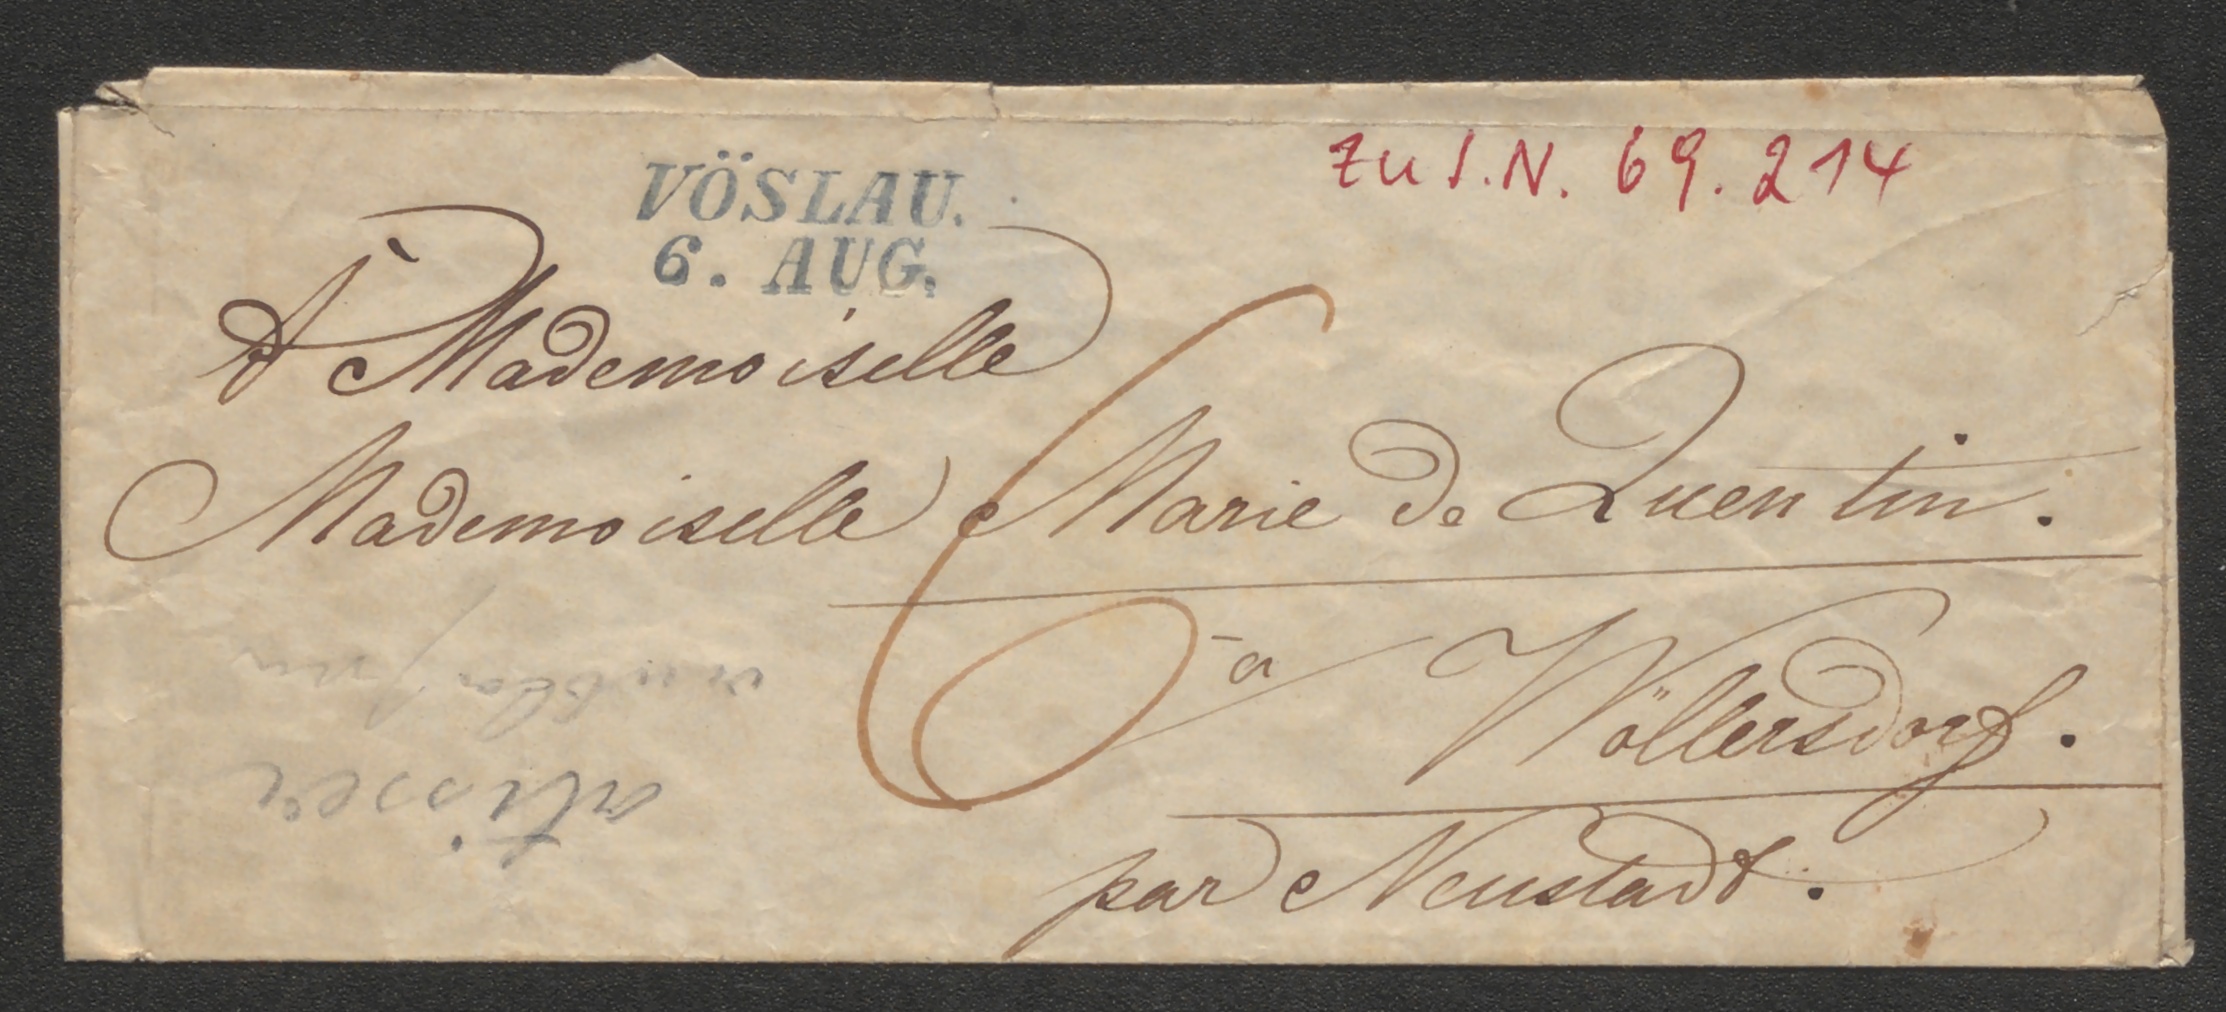 VÖSLAU.
6. AUG.
zu I.N. 69.214
À Mademoiselle
Mademoiselle Marie de Quentin.
6
à Wöllersdorf.
par Neustadt.